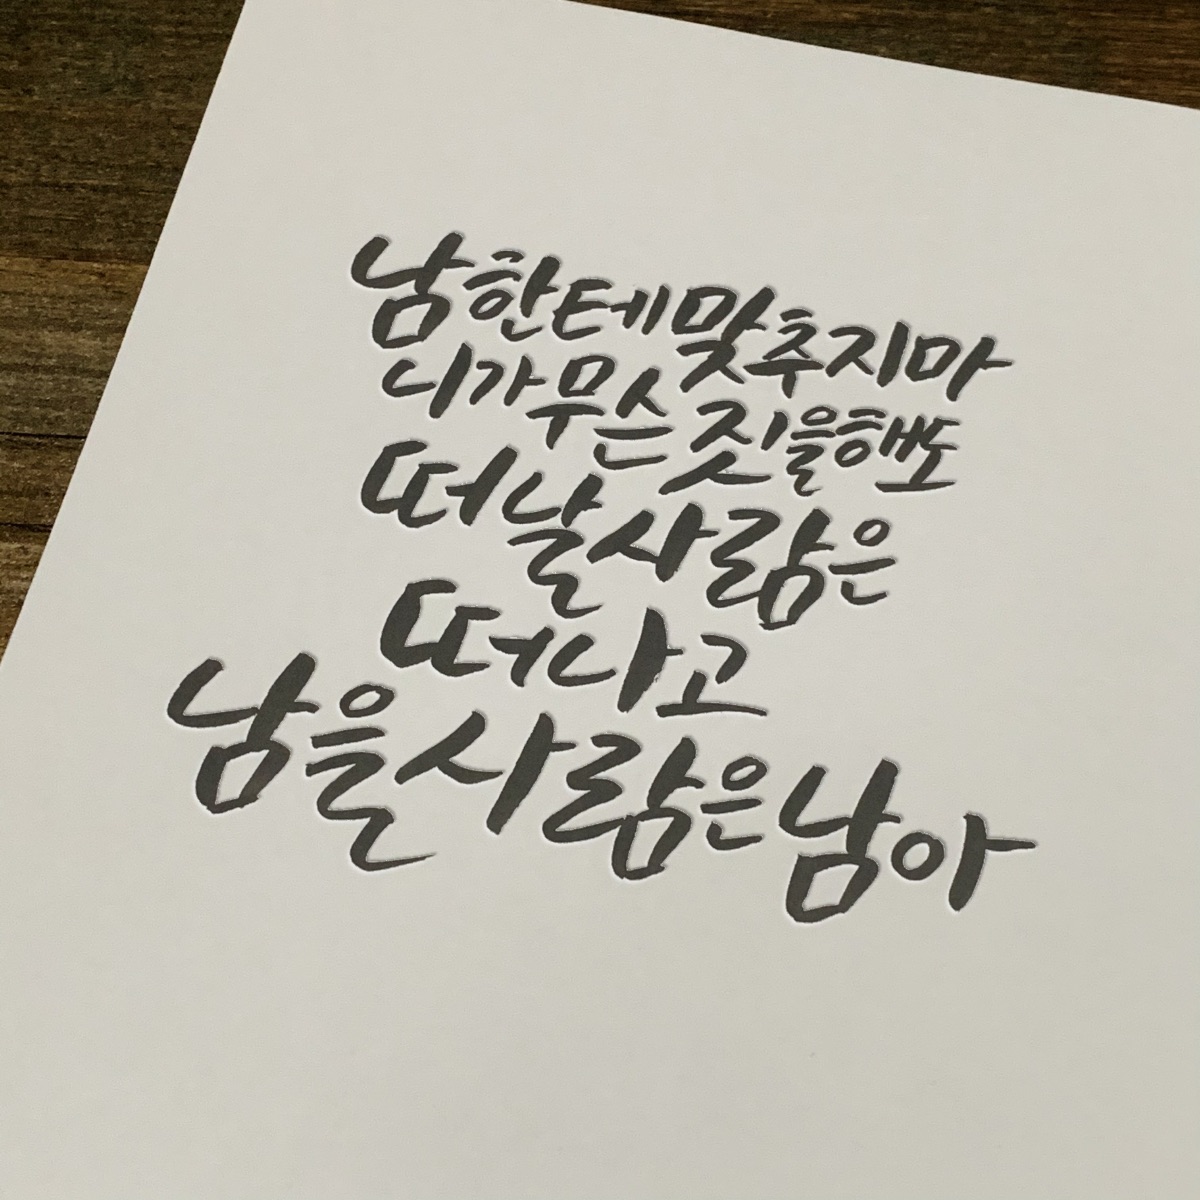 남한테 맞추지마
니가 무슨 짓을해도
떠날 사람은
떠나고
남을 사람은 남아